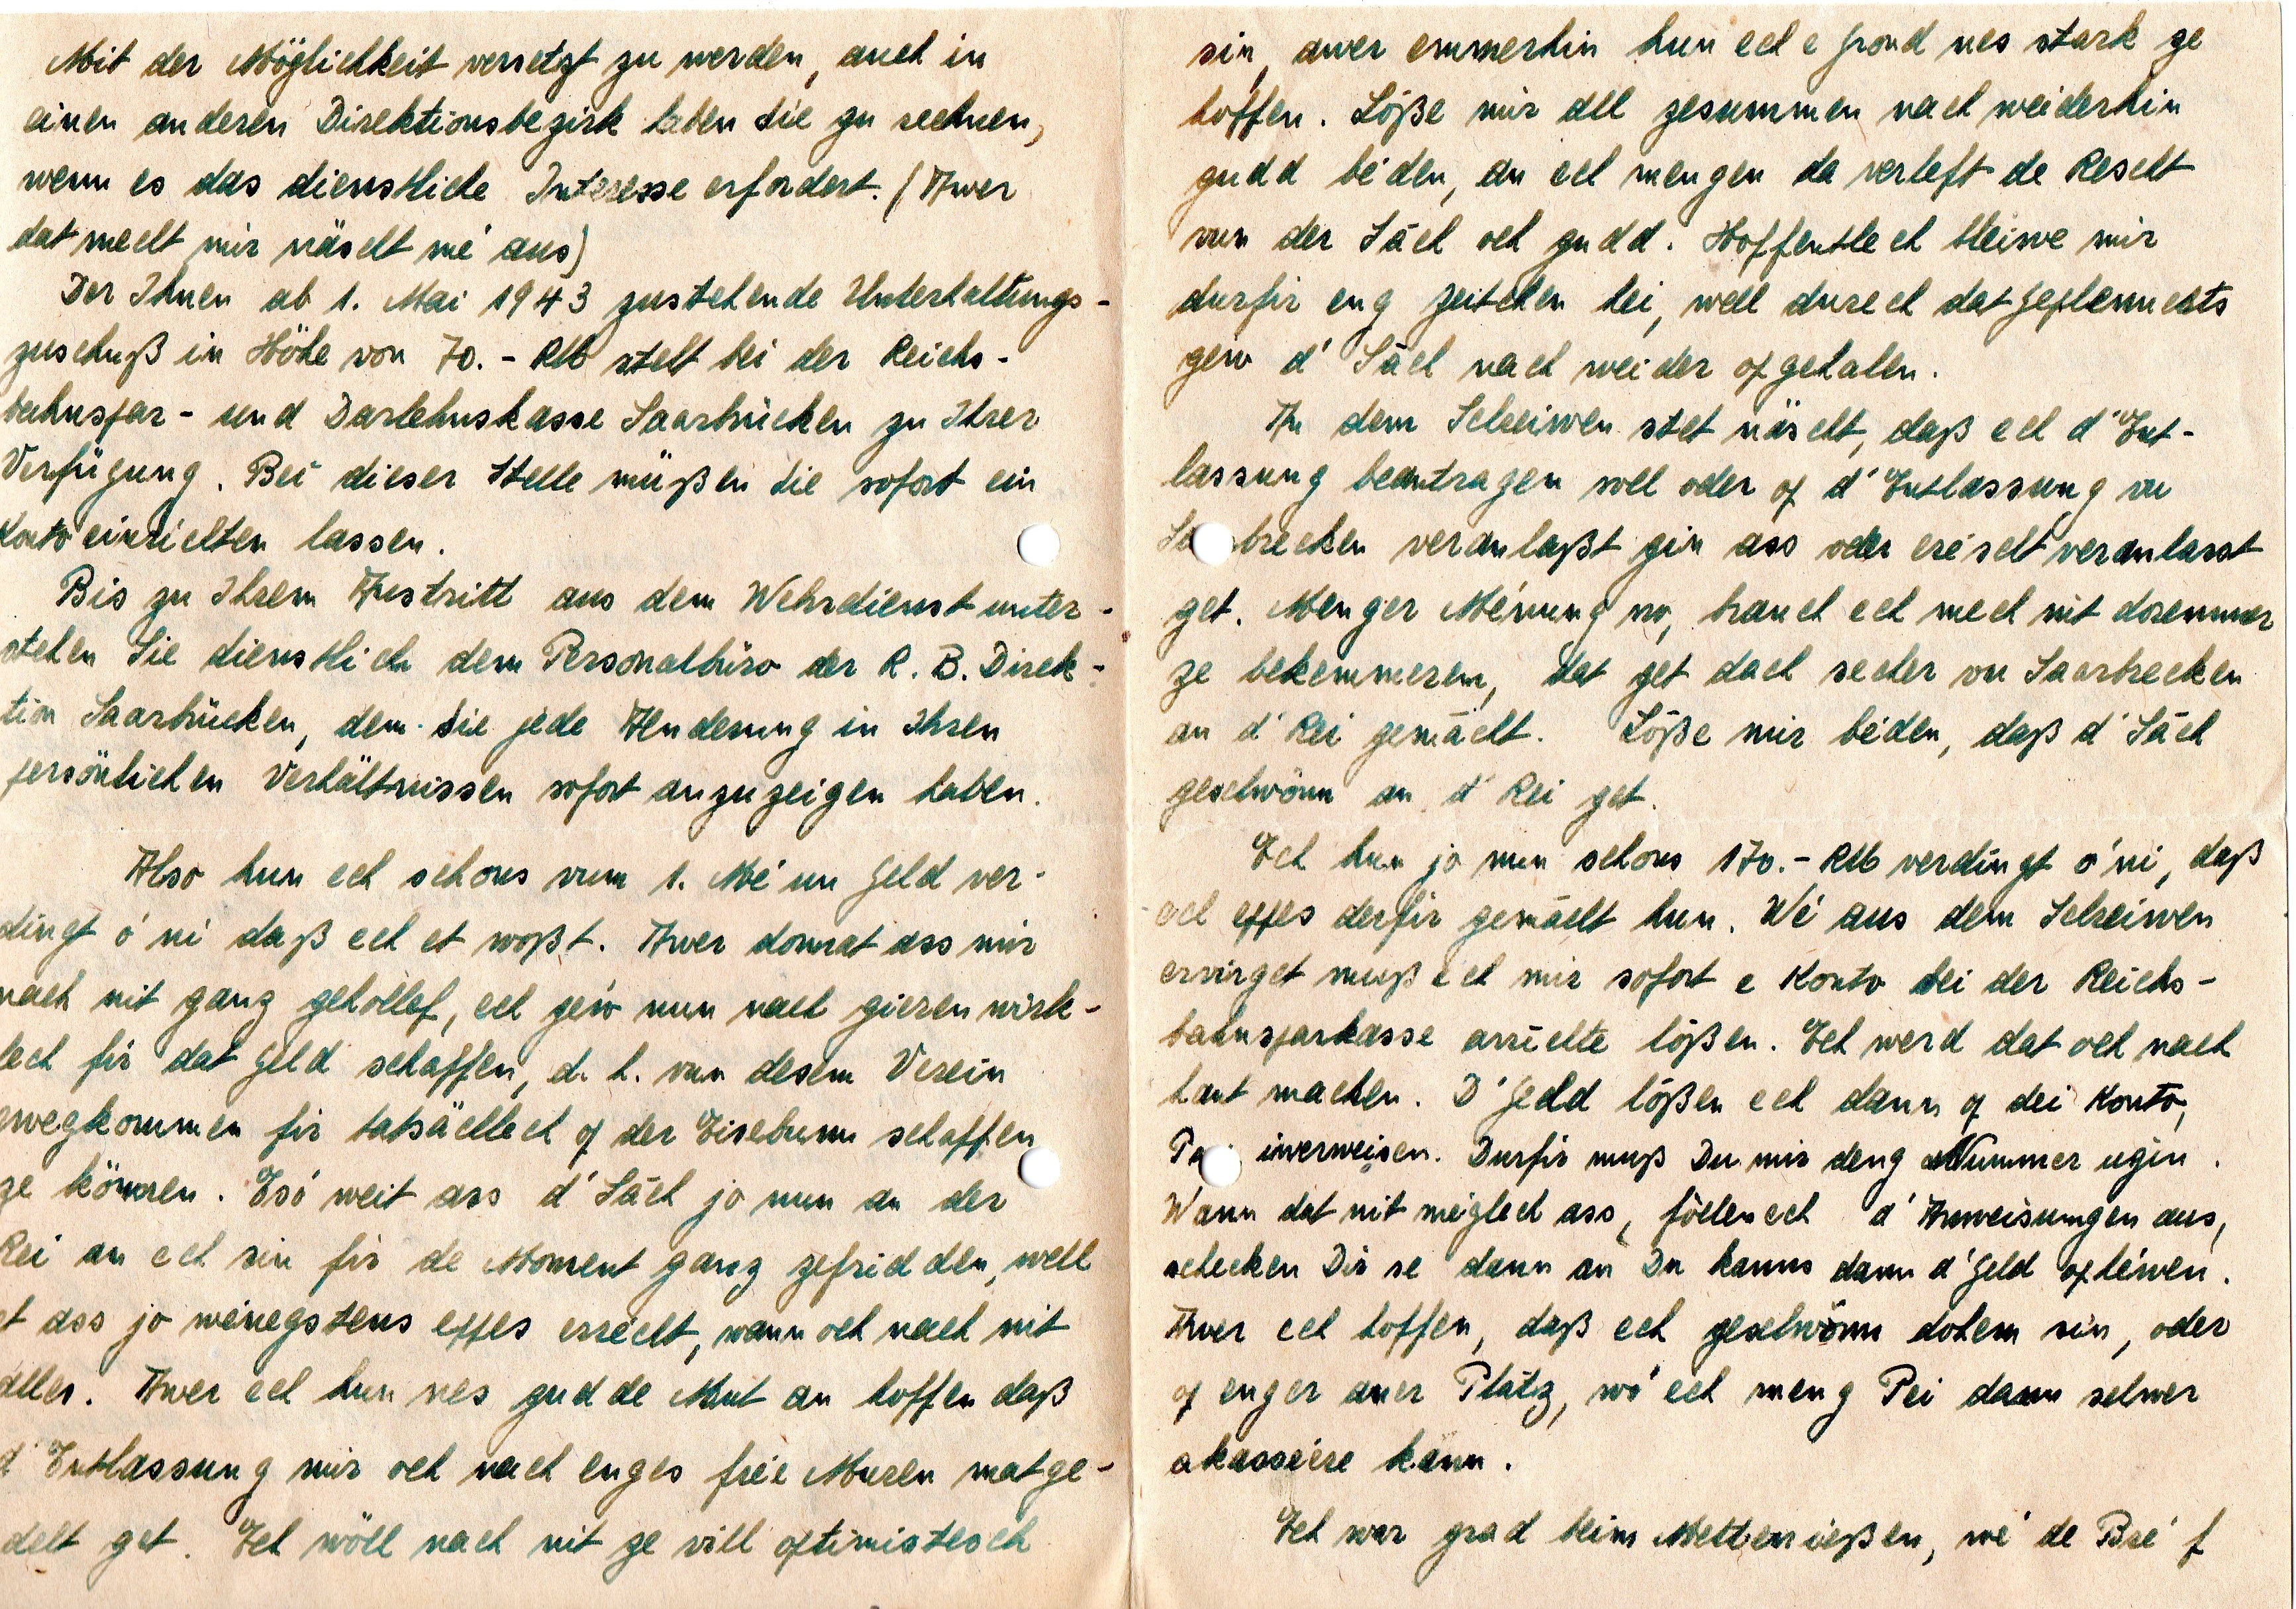 Mit der Möglichkeit versetzt zu werden, auch in
einen anderen Direktionsbezirk haben Sie zu rechnen,
wenn es das dienstliche Interesse erfordert. (Awer
dat mecht mir näscht mé aus)
Der Ihnen ab 1. Mai 1943 zustehende Unterhaltungs-
zuschuß in Höhe von 70.- RM steht bei der Reichs-
bahnspar- und Darlehnskasse Saarbrücken zu Ihrer
Verfügung. Bei dieser Stelle müßen Sie sofort ein
Konto einrichten lassen.
Bis zu Ihrem Austritt aus dem Wehrdienst unter-
stehen Sie dienstlich dem Personalbüro der R. B. Direk-
tion Saarbrücken, dem Sie jede Änderung in Ihren
persönlichen Verhältnissen sofort anzuzeigen haben.
Also hun ech schons vum 1. Mé un Geld ver-
dingt o'ni daß ech et woßt. Awer domat ass mir
nach nit ganz gehollef, ech géw nun nach gieren wirk-
lech fir dat Geld schaffen, d. h. vun desem Verein
ewegkommen fir tatsächlech op der Eisebunn schaffen
ze können. Esó weit ass d'Sâch jo nun an der
Rei an ech sin fir de Moment ganz zefridden, well
et ass jo wéinegstens eppes erréecht, wann och nach nit
alles. Awer ech hun nes gudde Mut an hoffen daß
d'Entlassung mir och nach enges freie Muren matge-
delt get. Ech wöll nach nit ze vill optimistesch
sin, awer emmerhin hun ech e Grond nes stark ze
hoffen. Lóße mir all zesummen nach weiderhin
gudd bieden, an ech mengen da verleft de Rescht
vun der Sâch och gudd. Hoffentlech bleiwe mir
durfir eng Zeitchen hei, well durech dat Geplennechts
géw d'Sâch nach weider opgehalen.
An dem Schreiwen stet näscht, daß ech d'Ent-
lassung beantragen soll oder op d'Entlassung vu
Sa brecken veranlaßt gin ass oder eréischt veranlasst
get. Menger Ménung no, brauch ech mech nit dorëmmer
ze bekemmeren, dat get dach secher vu Saarbrecken
an d'Rei gemâcht. Lóße mir bieden, daß d'Sâch
geschwönn an d'Rei get.
Ech hun jo nun schons 170.- RM verdingt o'ni, daß
ech eppes derfir gemâcht hun. Wé aus dem Schreiwen
ervirget muß ech mir sofort e Konto bei der Reichs-
bahnsparkasse arrichte lóßen. Ech werd dat och nach
haut machen. D'Geld lóßen ech dann op dei Konto,
Pa iwerweisen. Durfir muß Du mir deng Nummer ugin.
Wann dat nit méiglech ass, föllen ech d'Anweisungen aus,
schecken Dir se dann an Du kanns dann d'Geld ophiewen.
Awer ech hoffen, daß ech geschwönn dohem sin, oder
op enger aner Plâtz, wó ech meng Pei dann selwer
akasséiere kann.
Ech war grad beim Mettenießen, wé de Bréf